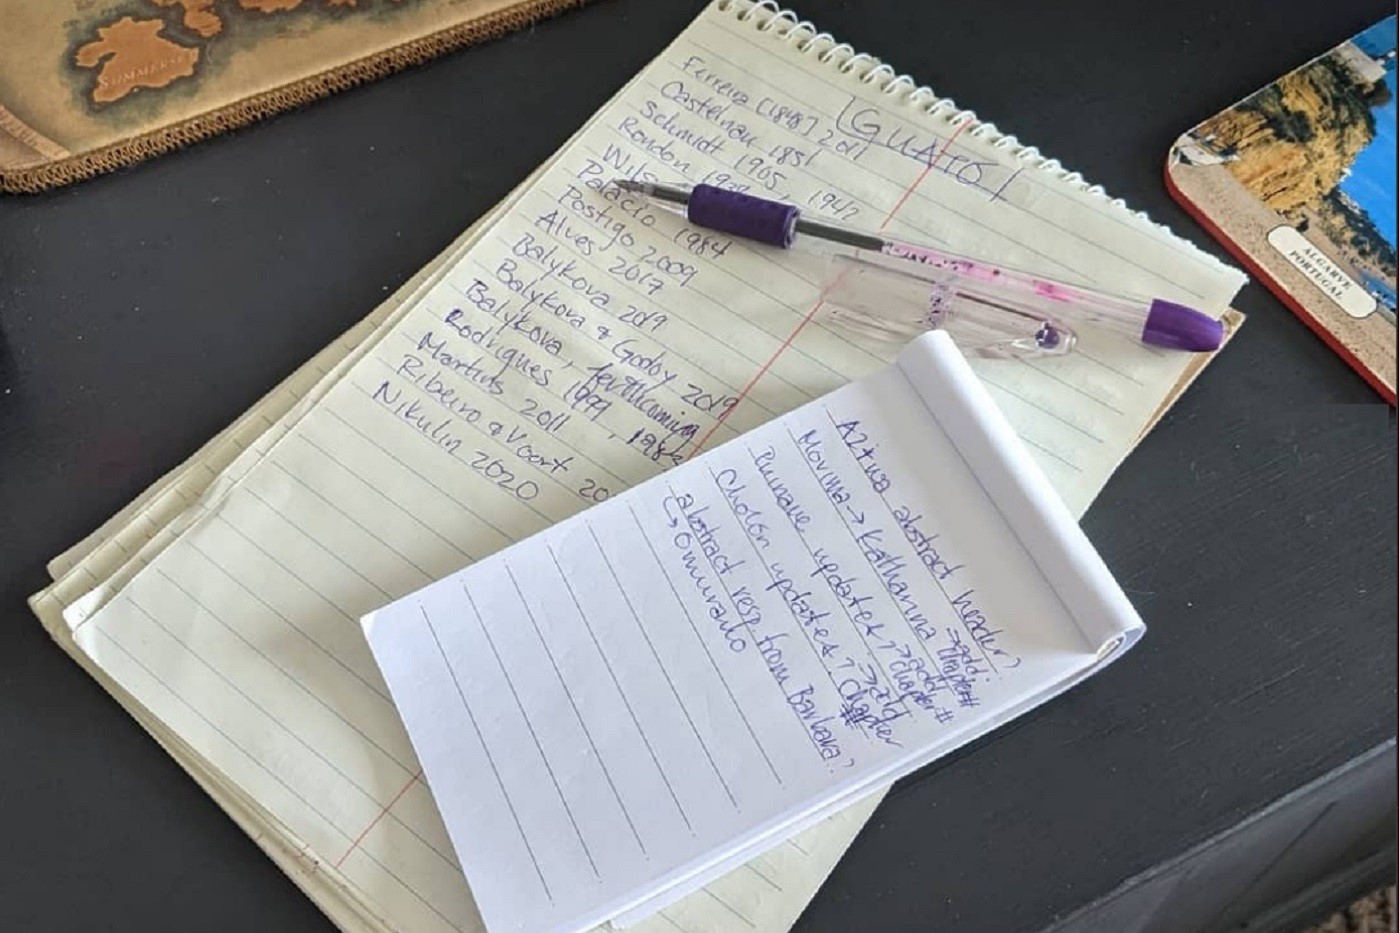 GUATÓ
Ferreira (1848) 2011
Castelnau 1851
Schmidt 1905, 1942
Rondon
Palácio 1984
Postigo 2009
Alves 2017
Balykova 2019
Balykova & Godoy 2019
Balykova, forthcoming
Rodrigues 1999,
Martins 2011
Ribeiro & Voort
Nikulin 2020
abstract header?
Movima → Katharina → add chapter#
updates? → add chapter#
Cholón updates? → add chapter #
abstract resp from Barbara?
↳ Omurano
ALGARVE
PORTUGAL